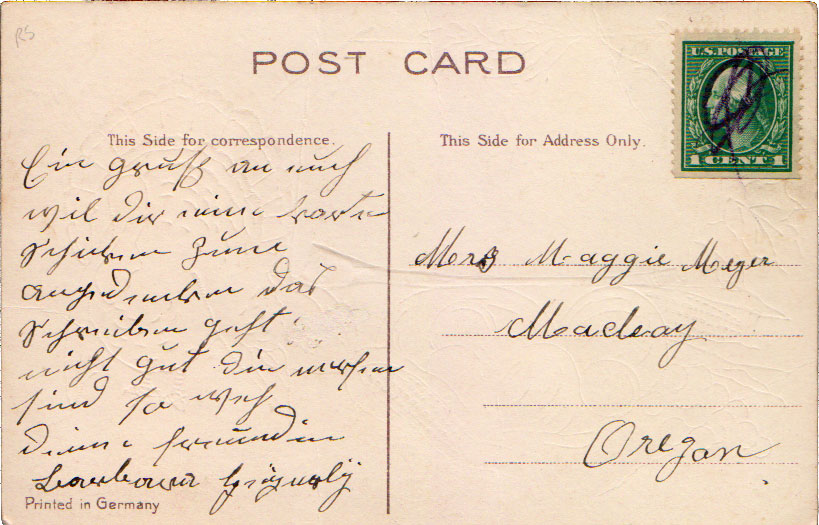 RS
POST CARD
U.S. POSTAGE
1 CENT 1
This Side for correspondence.
This Side for Address Only.
Ein gruß an euch
wil dir eine karte
schicken zum
angedenken das
schreiben geht
nicht gut die
sind so weh
deine freundin
Barbara
Mrs Maggie Meyer
Macleay
Oregon
Printed in Germany